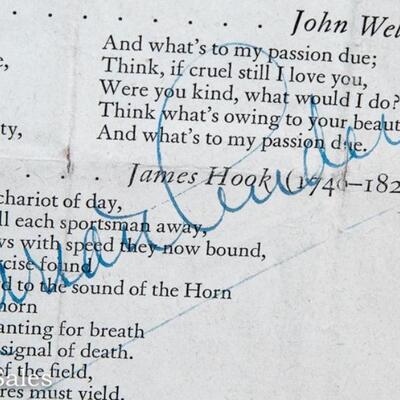 . . . . . . . . . John Wel
And what's to my passion due;
e,
Think, if cruel still I love you,
Were you kind, what would I do?
Think what's owing to your beaut
ty,
And what's to my passion due.
. . . . James Hook (1746–182
chariot of day,
ll each sportsman away,
ws with speed they now bound,
rcise found
d to the sound of the Horn
horn
anting for breath
signal of death.
of the field,
res must yield.
sales